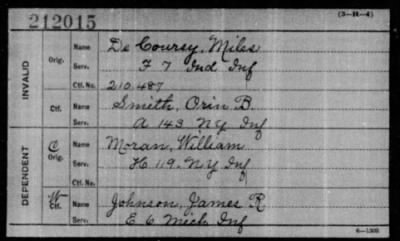 212015
(3-H-4)
INVALID
Orig. Name De Coursy, Miles
Serv. F 7 Ind Inf
Ctf. No. 210,487
Ctf. Name Smith, Orin B.
Serv. A 143 NY Inf
DEPENDENT
C Orig. Name Moran, William
Serv. H 119 NY Inf
Ctf. No.
W Ctf. Name Johnson, James R
Serv. E 6 Mich Inf